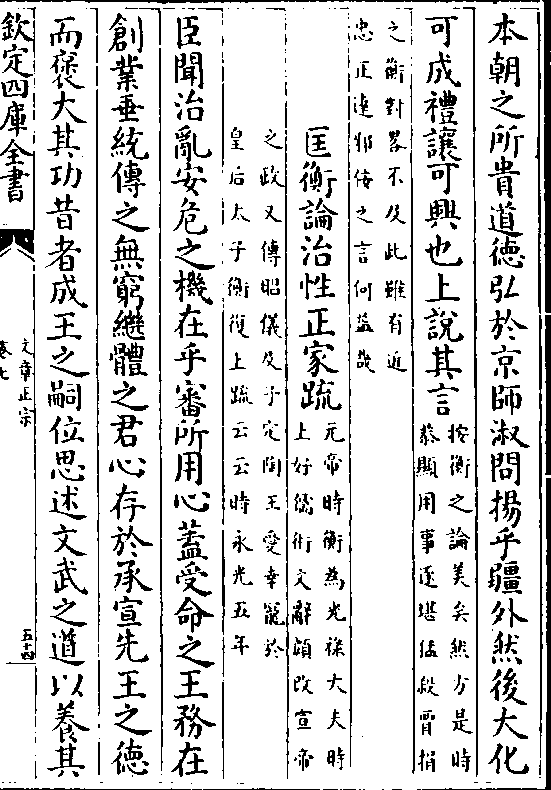 本朝之所貴道德弘於京師淑問揚乎疆外然後大化
可成禮讓可興也上說其言按衡之論美矣然方是時
恭顯用事逐堪猛殺賈捐
之衡對畧不及此雖有近
忠正逺邪佞之言何益哉
匡衡論治性正家疏元帝時衡為光祿大夫時
上好儒術文辭頗改宣帝
之政又傅昭儀及子定陶王愛幸寵於
皇后太子衡復上疏云云時永光五年
臣聞治亂安危之機在乎審所用心葢受命之王務在
創業垂統傳之無窮繼體之君心存於承宣先王之德
而褒大其功昔者成王之嗣位思述文武之道以養其
欽定四庫全書
文章正宗
卷七
五十四